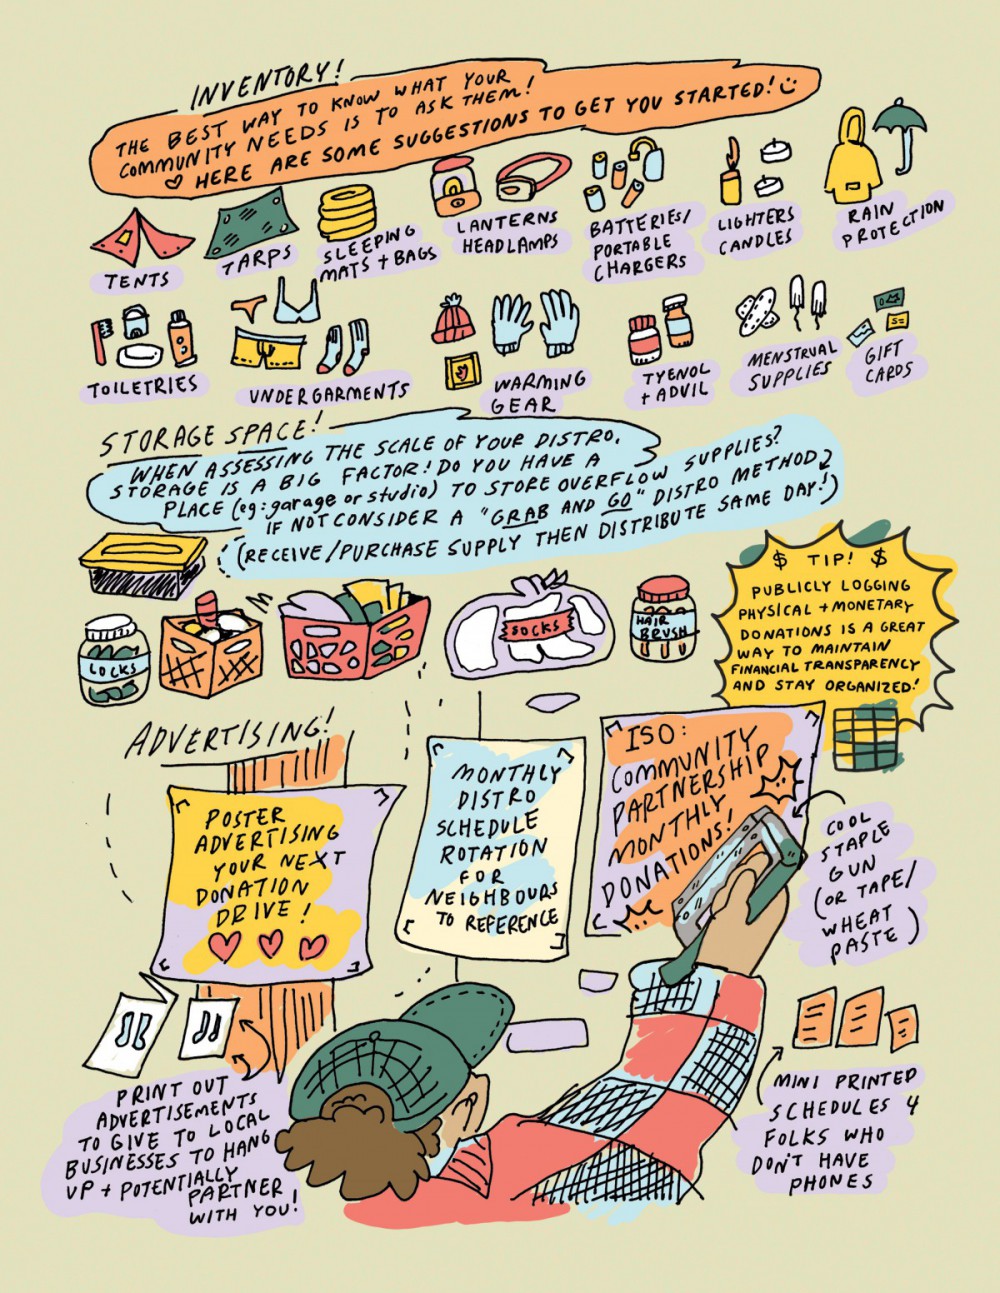 INVENTORY!
THE BEST WAY TO KNOW WHAT YOUR
COMMUNITY NEEDS IS TO ASK THEM!
♡ HERE ARE SOME SUGGESTIONS TO GET YOU STARTED! :)
TENTS
TARPS
SLEEPING
MATS + BAGS
LANTERNS
HEADLAMPS
BATTERIES/
PORTABLE
CHARGERS
LIGHTERS
CANDLES
RAIN
PROTECTION
TOILETRIES
UNDERGARMENTS
WARMING
GEAR
TYENOL
+ ADVIL
MENSTRUAL
SUPPLIES
GIFT
CARDS
STORAGE SPACE!
WHEN ASSESSING THE SCALE OF YOUR DISTRO,
STORAGE IS A BIG FACTOR! DO YOU HAVE A
PLACE (eg: garage or studio) TO STORE OVERFLOW SUPPLIES?
IF NOT CONSIDER A "GRAB AND GO" DISTRO METHOD
(RECEIVE/PURCHASE SUPPLY THEN DISTRIBUTE SAME DAY!)
LOCKS
SOCKS
HAIR
BRUSH
$ TIP! $
PUBLICLY LOGGING
PHYSICAL + MONETARY
DONATIONS IS A GREAT
WAY TO MAINTAIN
FINANCIAL TRANSPARENCY
AND STAY ORGANIZED!
ADVERTISING!
POSTER
ADVERTISING
YOUR NEXT
DONATION
DRIVE!
MONTHLY
DISTRO
SCHEDULE
ROTATION
FOR
NEIGHBOURS
TO REFERENCE
ISO:
COMMUNITY
PARTNERSHIP
MONTHLY
DONATIONS!
COOL
STAPLE
GUN
(OR TAPE/
WHEAT
PASTE)
PRINT OUT
ADVERTISEMENTS
TO GIVE TO LOCAL
BUSINESSES TO HANG
UP + POTENTIALLY
PARTNER
WITH YOU!
MINI PRINTED
SCHEDULES 4
FOLKS WHO
DON'T HAVE
PHONES